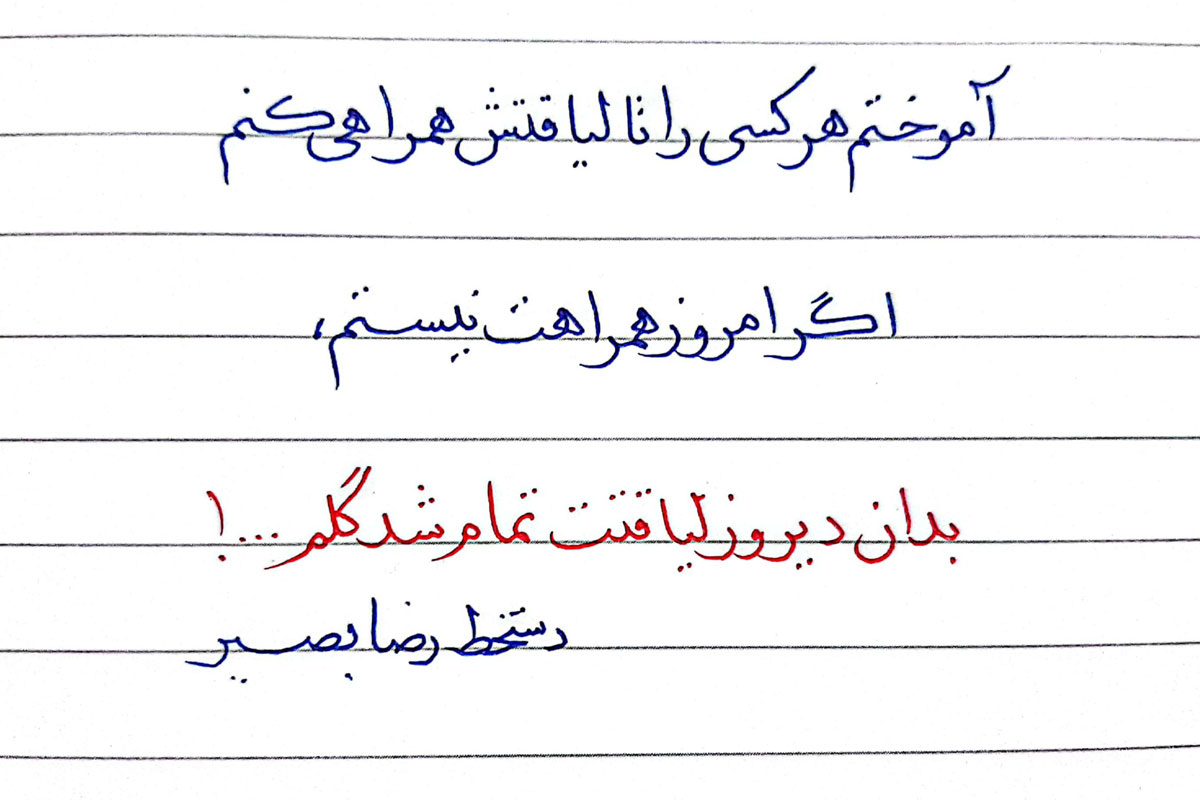 آموختم هر کسی را تا لیاقتش همراهی کنم
اگر امروز همراهت نیستم،
بدان دیروز لیاقتت تمام شد گلم...!
دستخط رضا بصیر